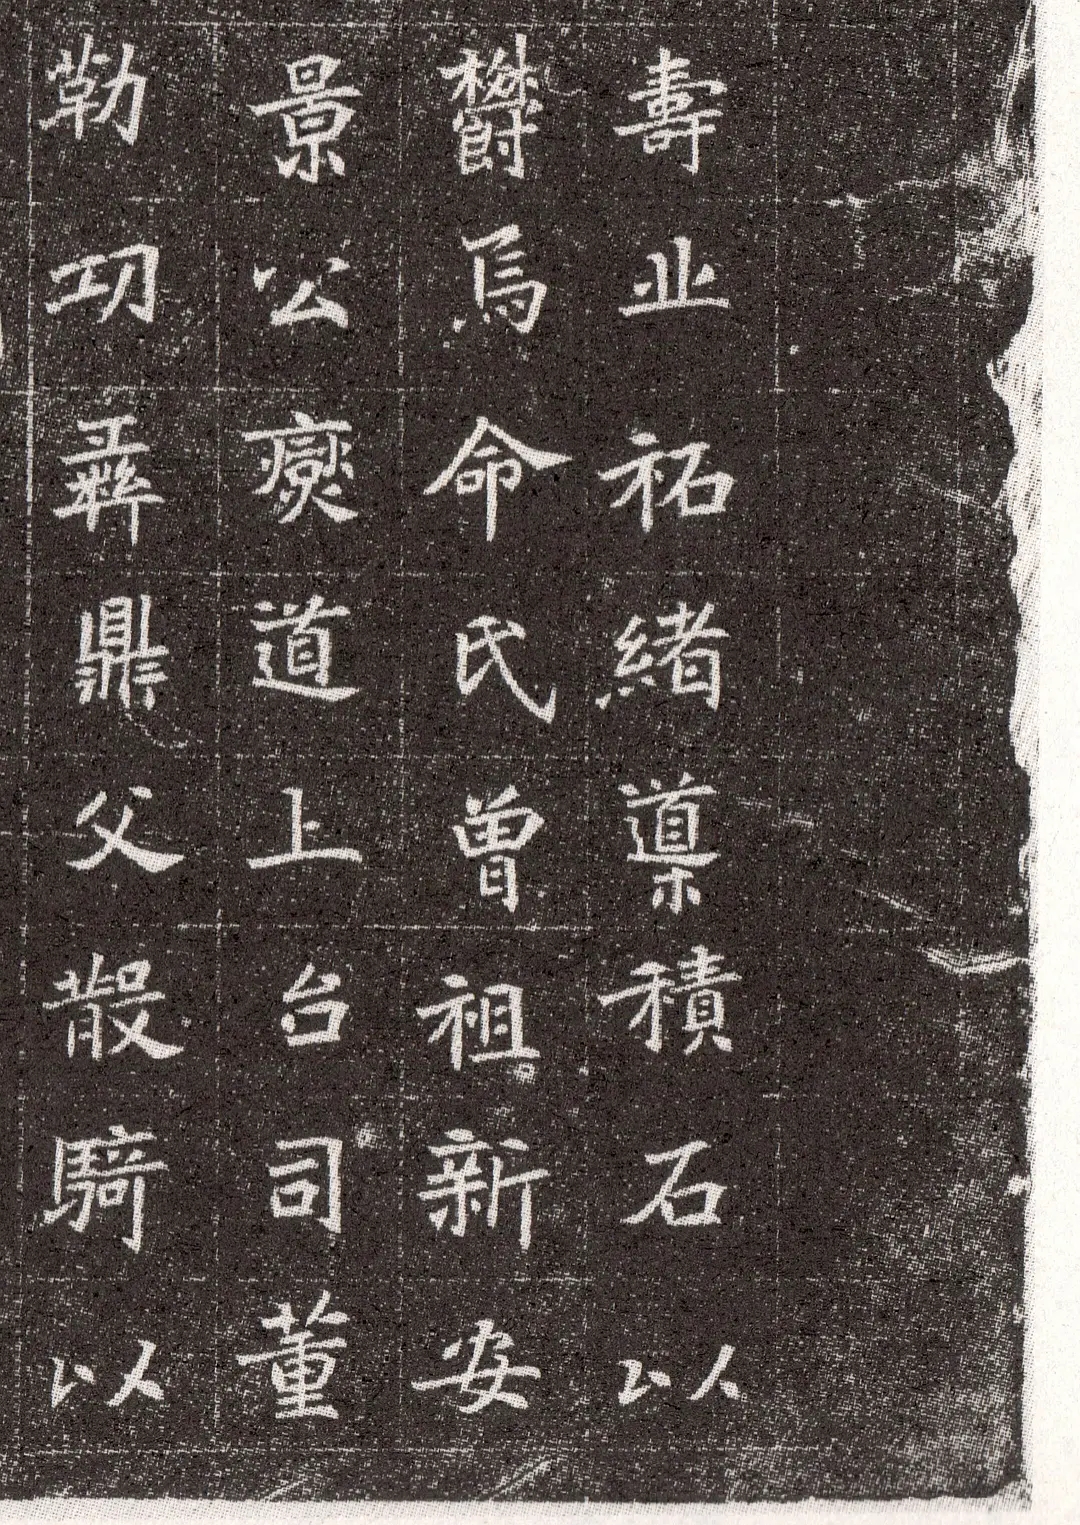 壽丘祏緒導積石以
欝焉命氏曾祖新安
景公燮道上台司董
勒功彝鼎父散騎以